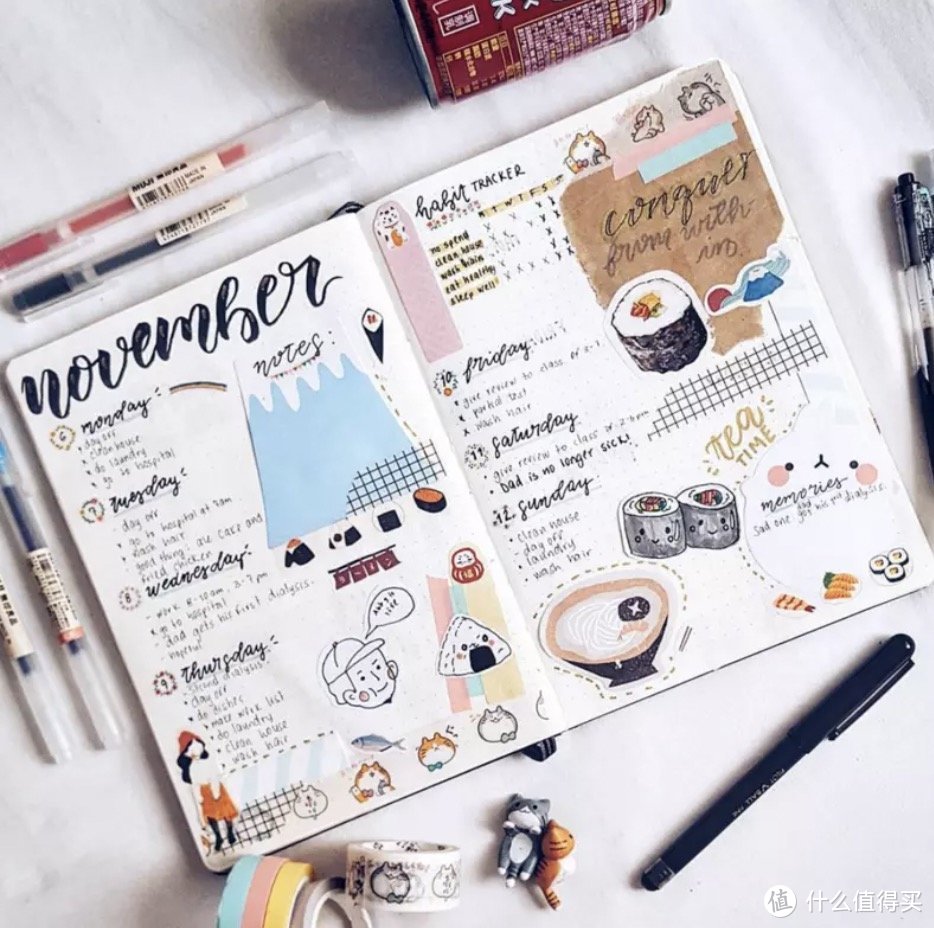 november
notes:
6 monday
day off
clean house
do laundry
go to hospital
7 tuesday
day off
go to hospital at 9am
wash hair
fried chicken
8 wednesday
go to hospital
dad gets his first dialysis.
hopeful
9 thursday
second dialysis
day off
do dishes
make work list
do laundry
clean house
wash hair
habit TRACKER
M T W T F S S
no spend
clean house
wash hair
eat healthy
sleep well
conquer
from with-
in.
10. friday
give review to class
partial test
wash hair
11. saturday
give review to class
Dad is no longer sick!
12. sunday
clean house
day off
laundry
wash hair
tea
TIME
memories
dad
Sad one got his 2nd dialysis.
MUJI
MADE IN
JAPAN
PILOT
值 什么值得买